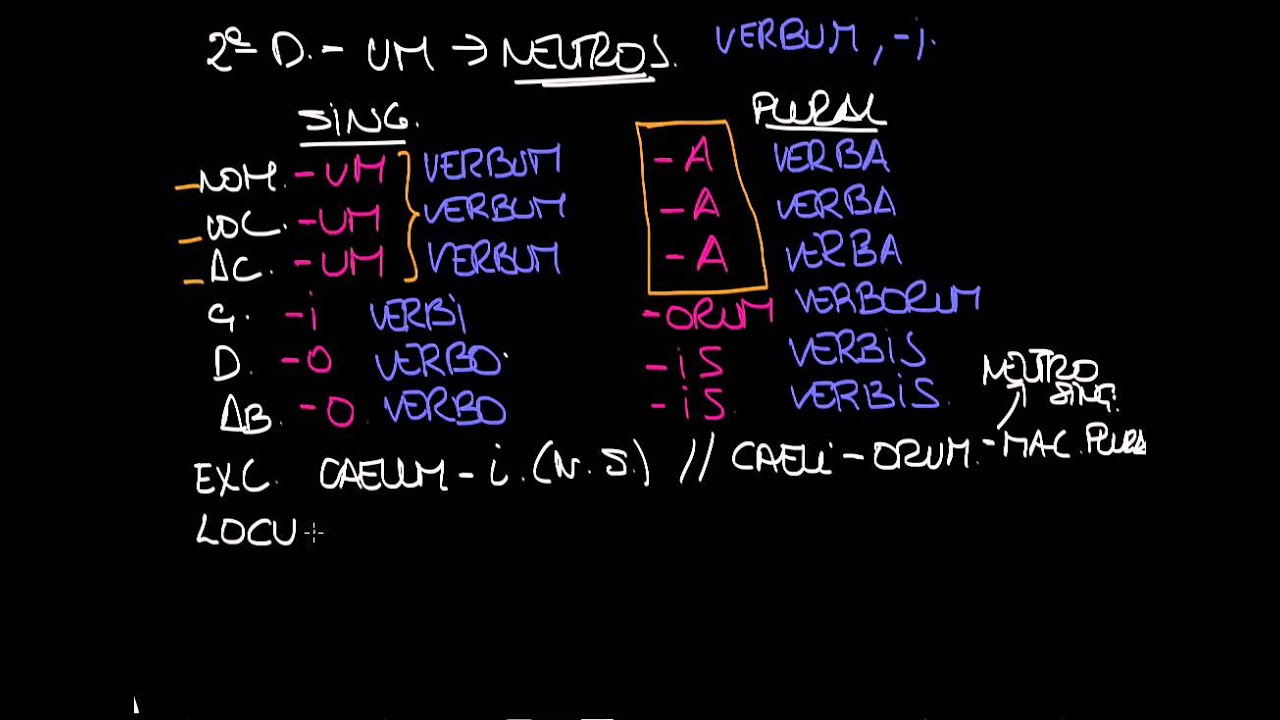 2ª D. - UM → NEUTROS. VERBUM, -i.
SiNG. PLURAL
NOM. -UM VERBUM -A VERBA
VOC. -UM VERBUM -A VERBA
AC. -UM VERBUM -A VERBA
G. -i VERBi -ORUM VERBORUM
D. -O VERBO. -iS VERBiS
AB. -O. VERBO -iS. VERBiS.
NEUTRO SiNG.
EXC. CAELUM - i. (N. S.) // CAELi - ORUM. - MAC. PLURA
LOCU